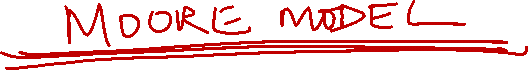 MOORE MODEL